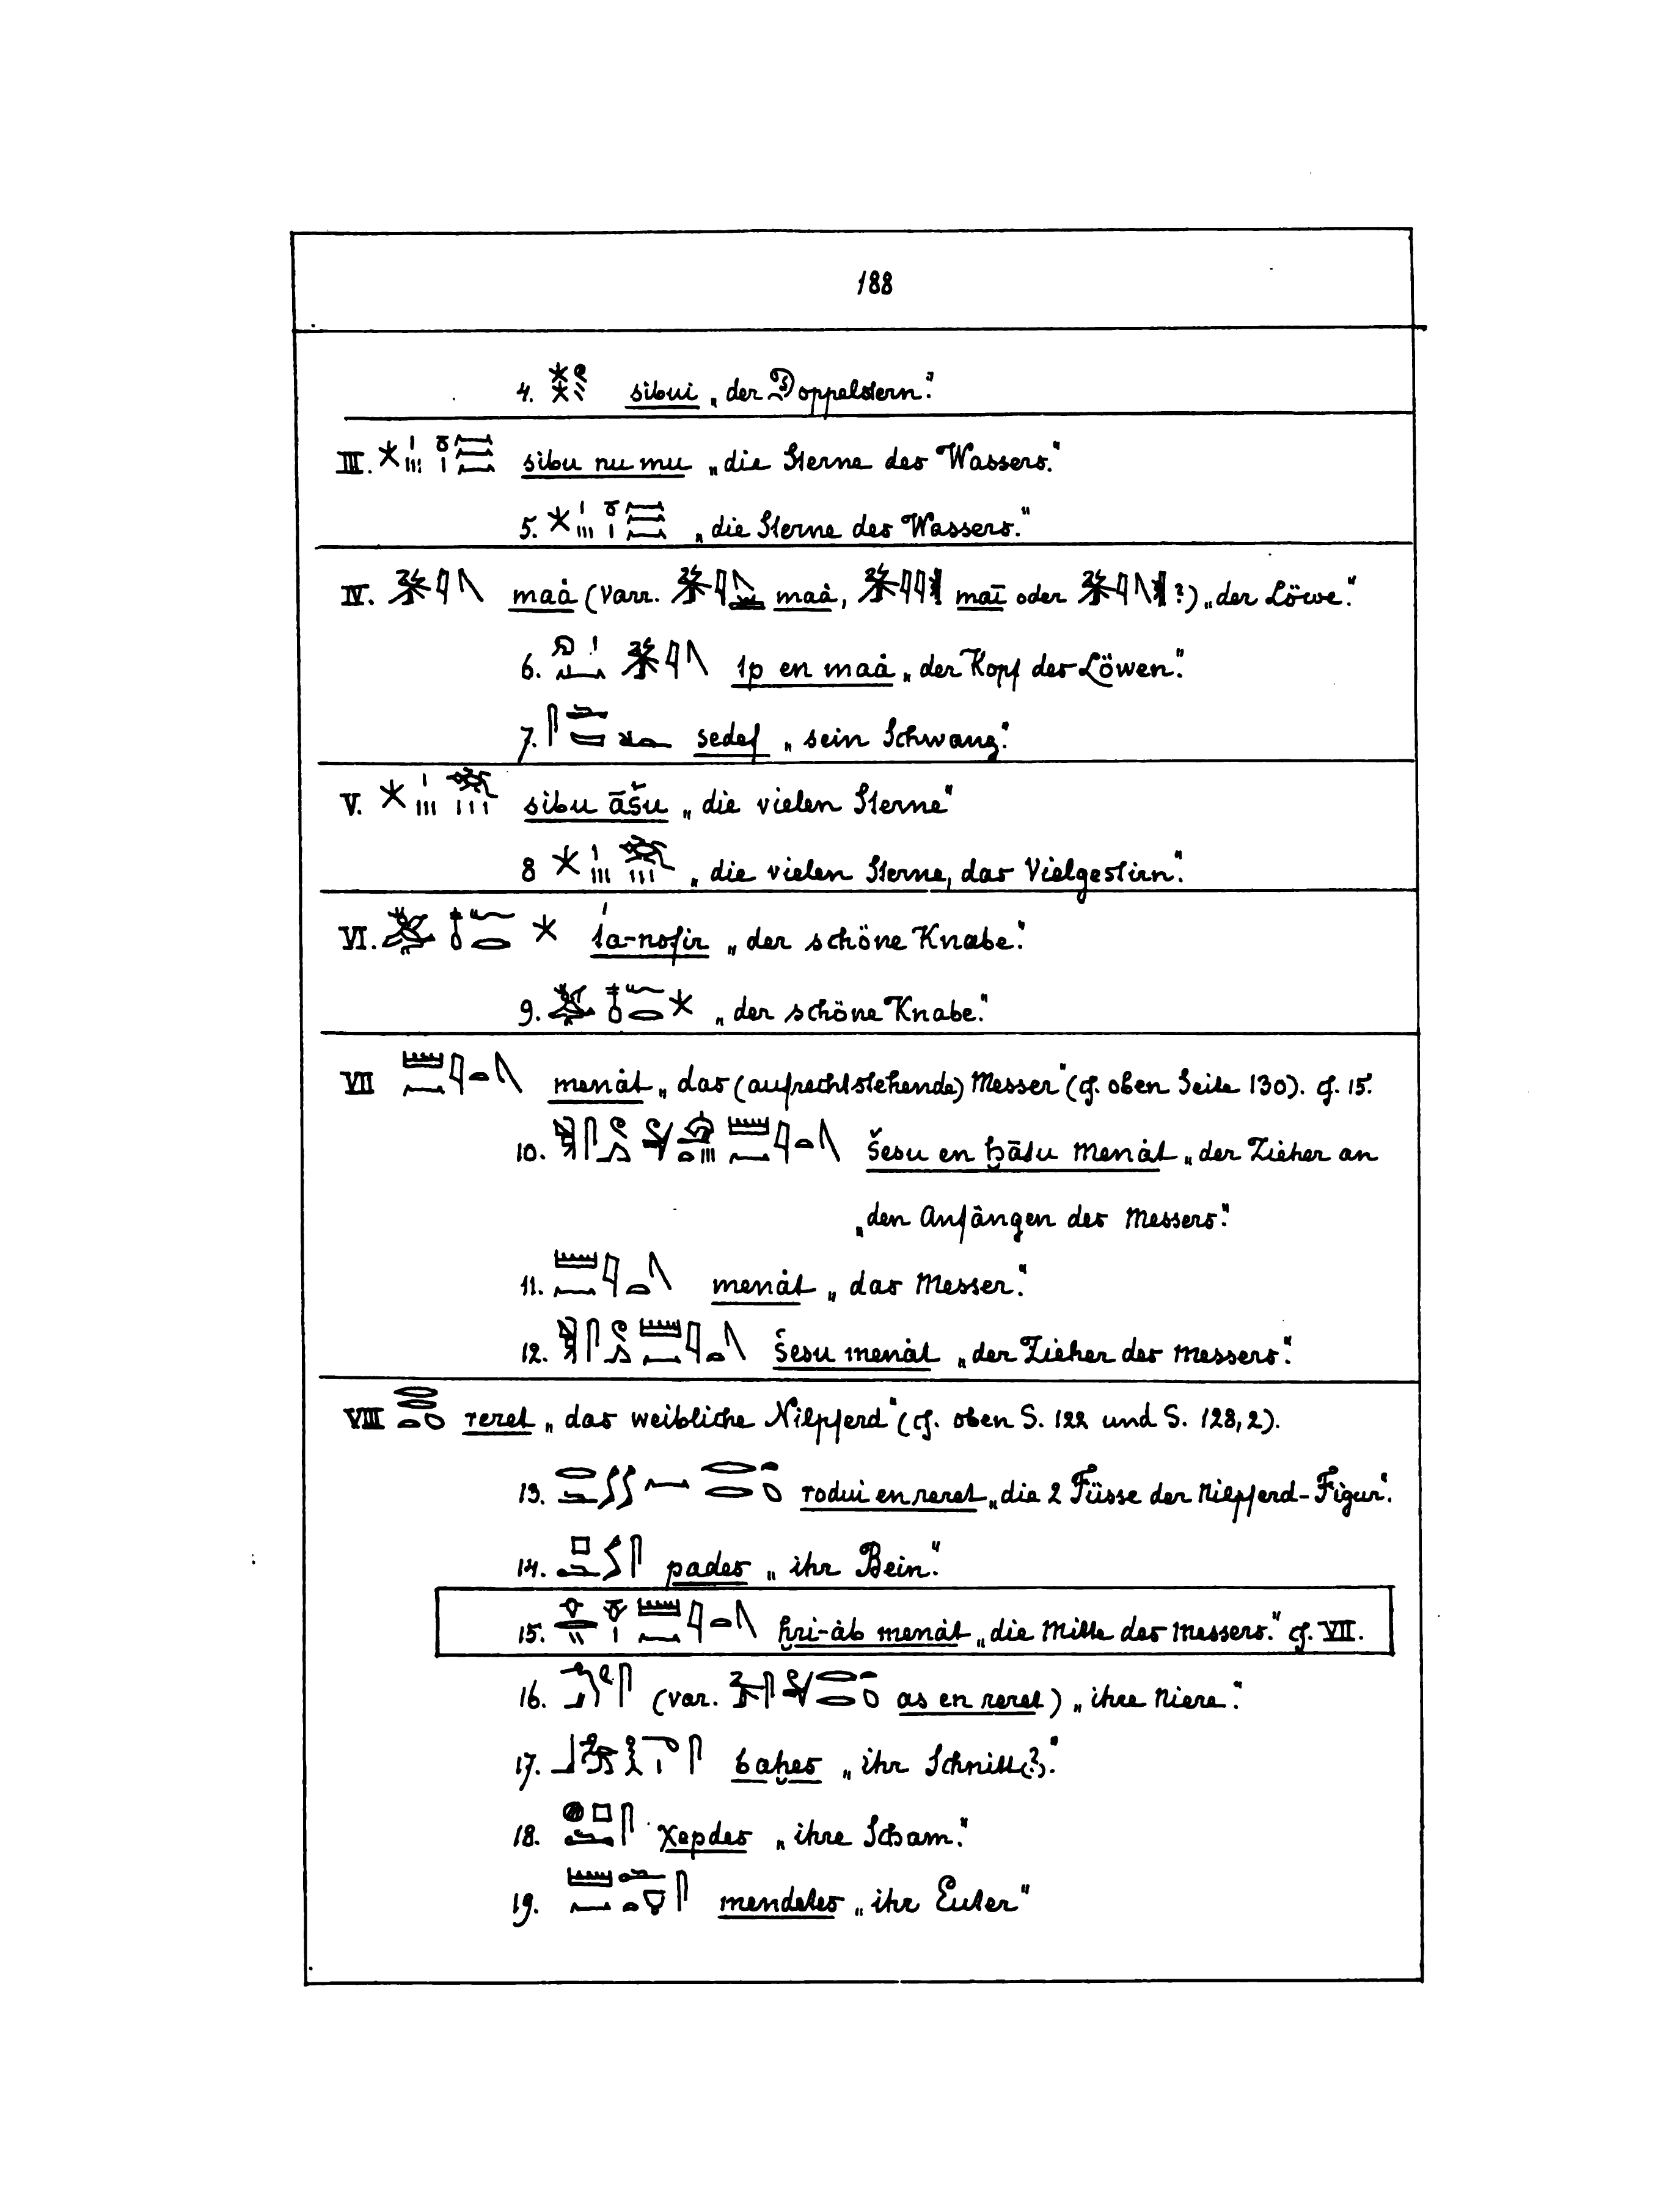 188
4. sibui „der Doppelstern."
III. sibu nu mu „die Sterne des Wassers."
5. „die Sterne des Wassers."
IV. maȧ (varr. maȧ, maī oder ?) „der Löwe."
6. 1p en maȧ „der Kopf des Löwen."
7. sedef „sein Schwanz."
V. sibu āšu „die vielen Sterne"
8 „die vielen Sterne, das Vielgestirn."
VI. -nofir „der schöne Knabe."
9. „der schöne Knabe."
VII menȧt „das (aufrechtstehende) Messer" (cf. oben Seite 130). cf. 15.
10. šesu en ḫātu menȧt „der Zieher an
„den Anfängen des Messers."
11. menȧt „das Messer."
12. šesu menȧt „der Zieher des Messers."
VIII reret „das weibliche Nilpferd" (cf. oben S. 122 und S. 128,2).
13. rodui en reret „die 2 Füsse der Nilpferd-Figur."
14. pades „ihr Bein."
15. ḫri-ȧb menȧt „die Mitte des Messers." cf. VII.
16. (var. as en reret) „ihre Niere."
17. baḫes „ihr Schnitt(?)."
18. χepdes „ihre Scham."
19. mendetes „ihr Euter"